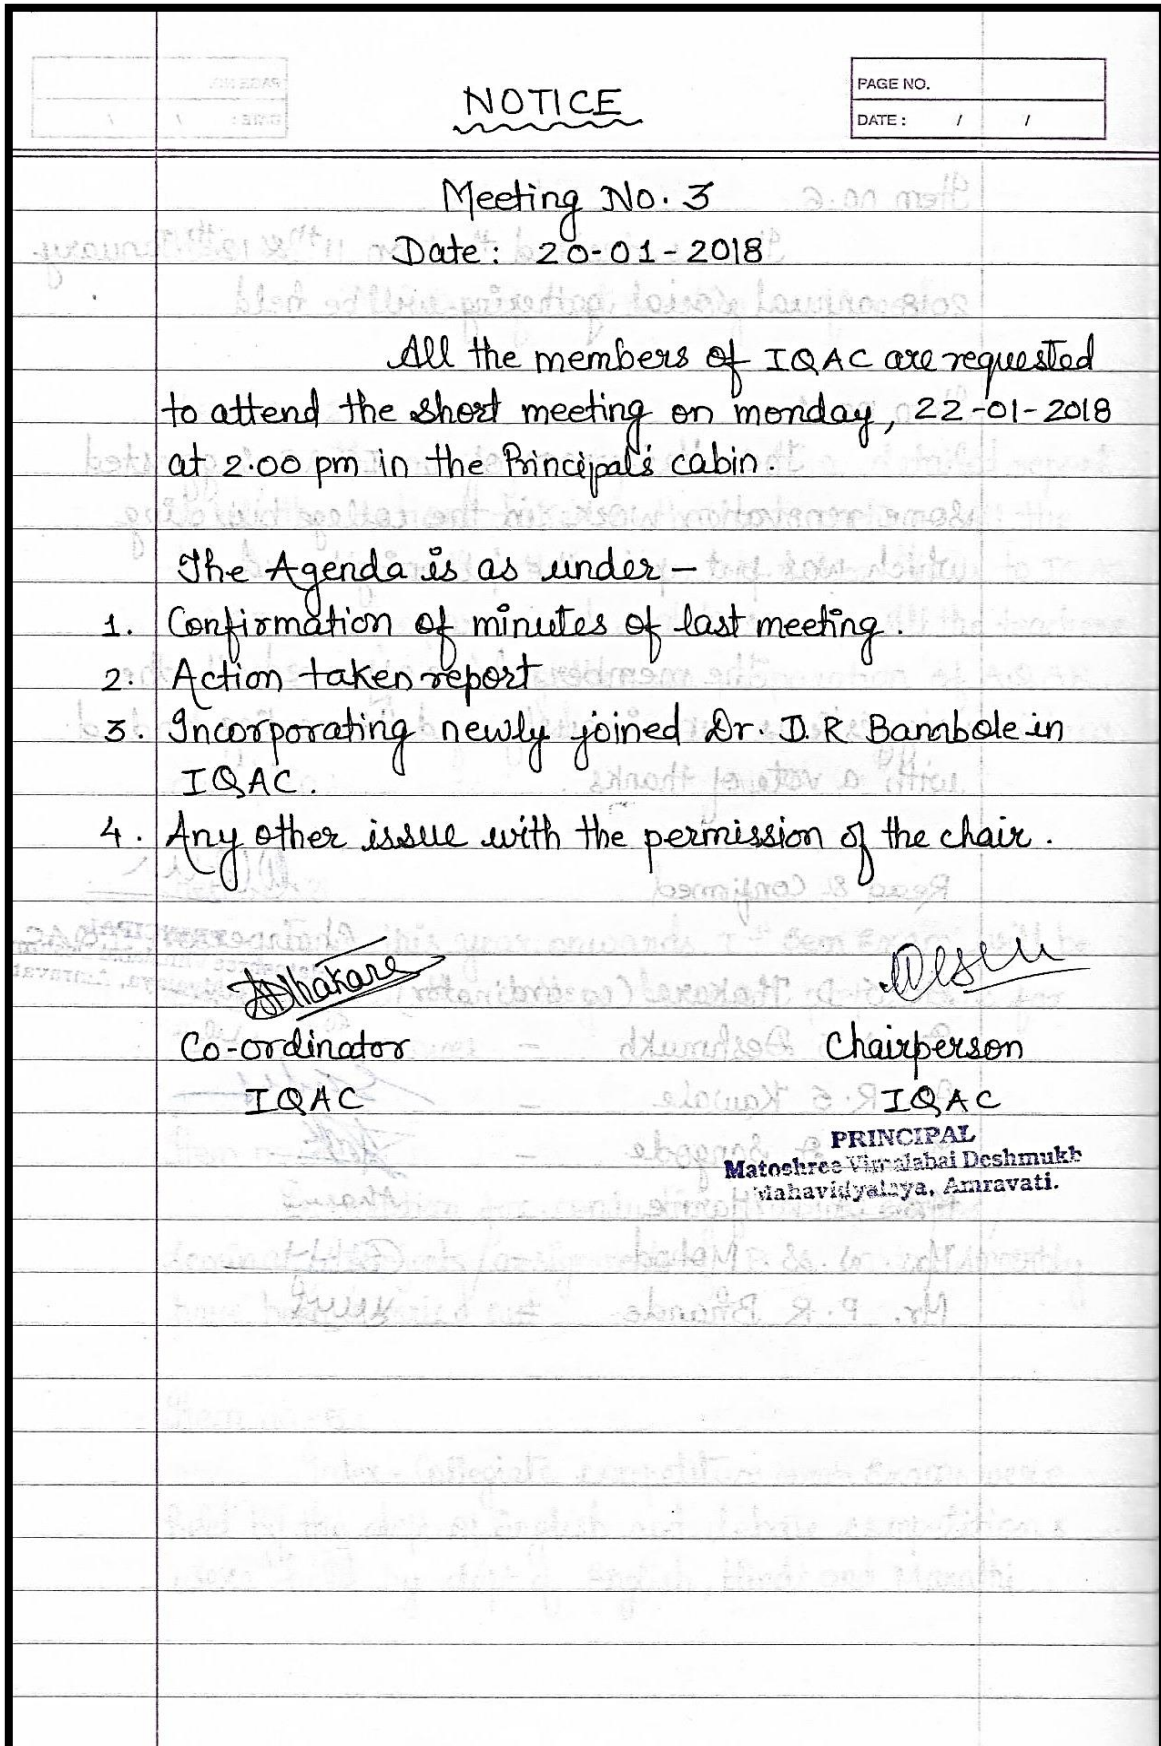 NOTICE
PAGE NO.
DATE : / /
Meeting No. 3
Date : 20-01-2018
All the members of IQAC are requested
to attend the short meeting on monday, 22-01-2018
at 2.00 pm in the Principal's cabin.
The Agenda is as under –
1. Confirmation of minutes of last meeting.
2. Action taken report
3. Incorporating newly joined Dr. D.R Bambole in
IQAC.
4. Any other issue with the permission of the chair.
Co-ordinator Chairperson
IQAC IQAC
PRINCIPAL
Matoshree Vimalabai Deshmukh
Mahavidyalaya, Amravati.